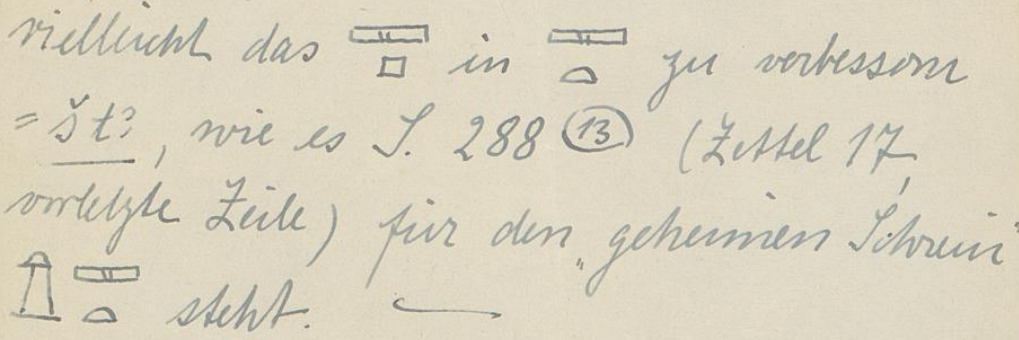 vielleicht das 𓈙𓊪 in 𓈙𓏏 zu verbessern
= št3, wie es S. 288 (13) (Zettel 17,
vorletzte Zeile) für den „geheimen Schrein"
𓉐𓈙𓏏 steht. —